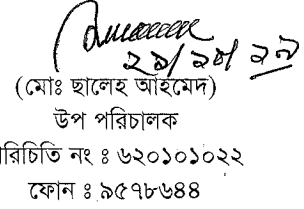 ২৯/১০/১৯
(মোঃ ছালেহ আহমেদ)
উপ পরিচালক
রিচিতি নং ঃ ৬২০১০১০২২
ফোন ঃ ৯৫৭৮৬৪৪